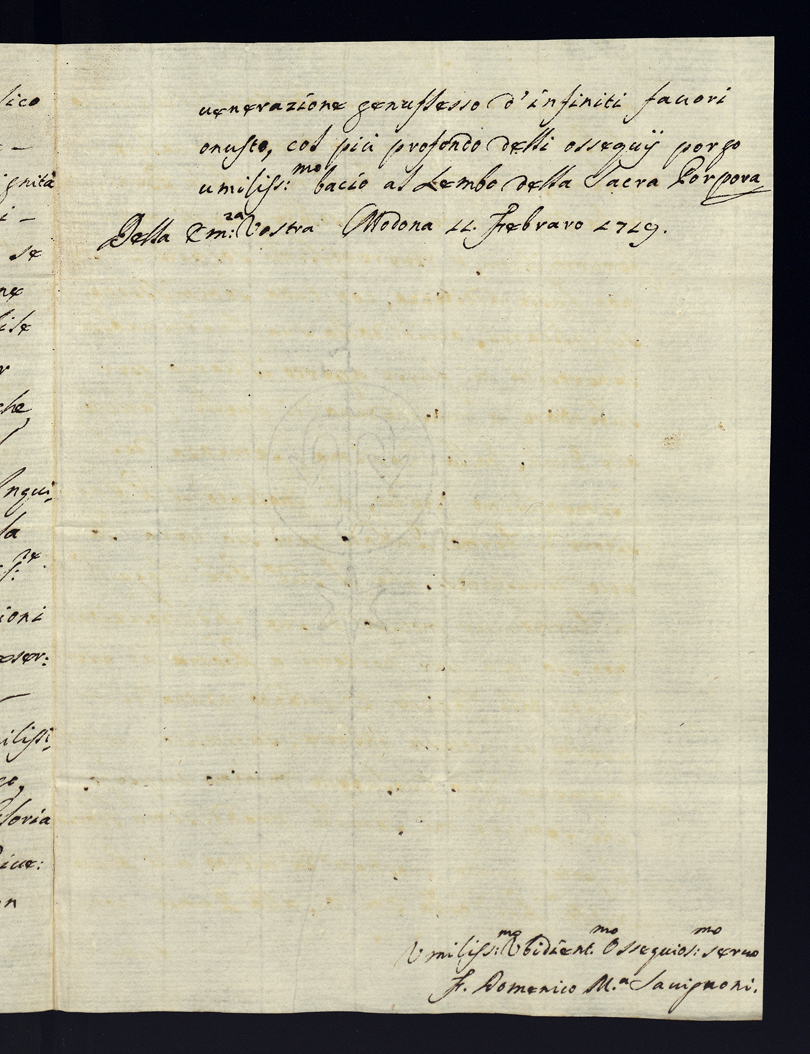 lico
ignità
i –
se
ne
lise
r
che
Inqui,
la
ioni
oser:
ilissi,
go,
loria
ive:
n
venerazione genuflesso d'infiniti favori
onusto, col più profondo delli ossequÿ porgo
umiliss:mo bacio al Lembo della Sacra Porpora
Della Em:za Vostra Modona 11. Febraro 1719.
Umiliss:mo Vbidient.mo Ossequios:mo servo
F. Domenico M.a Savignoni.